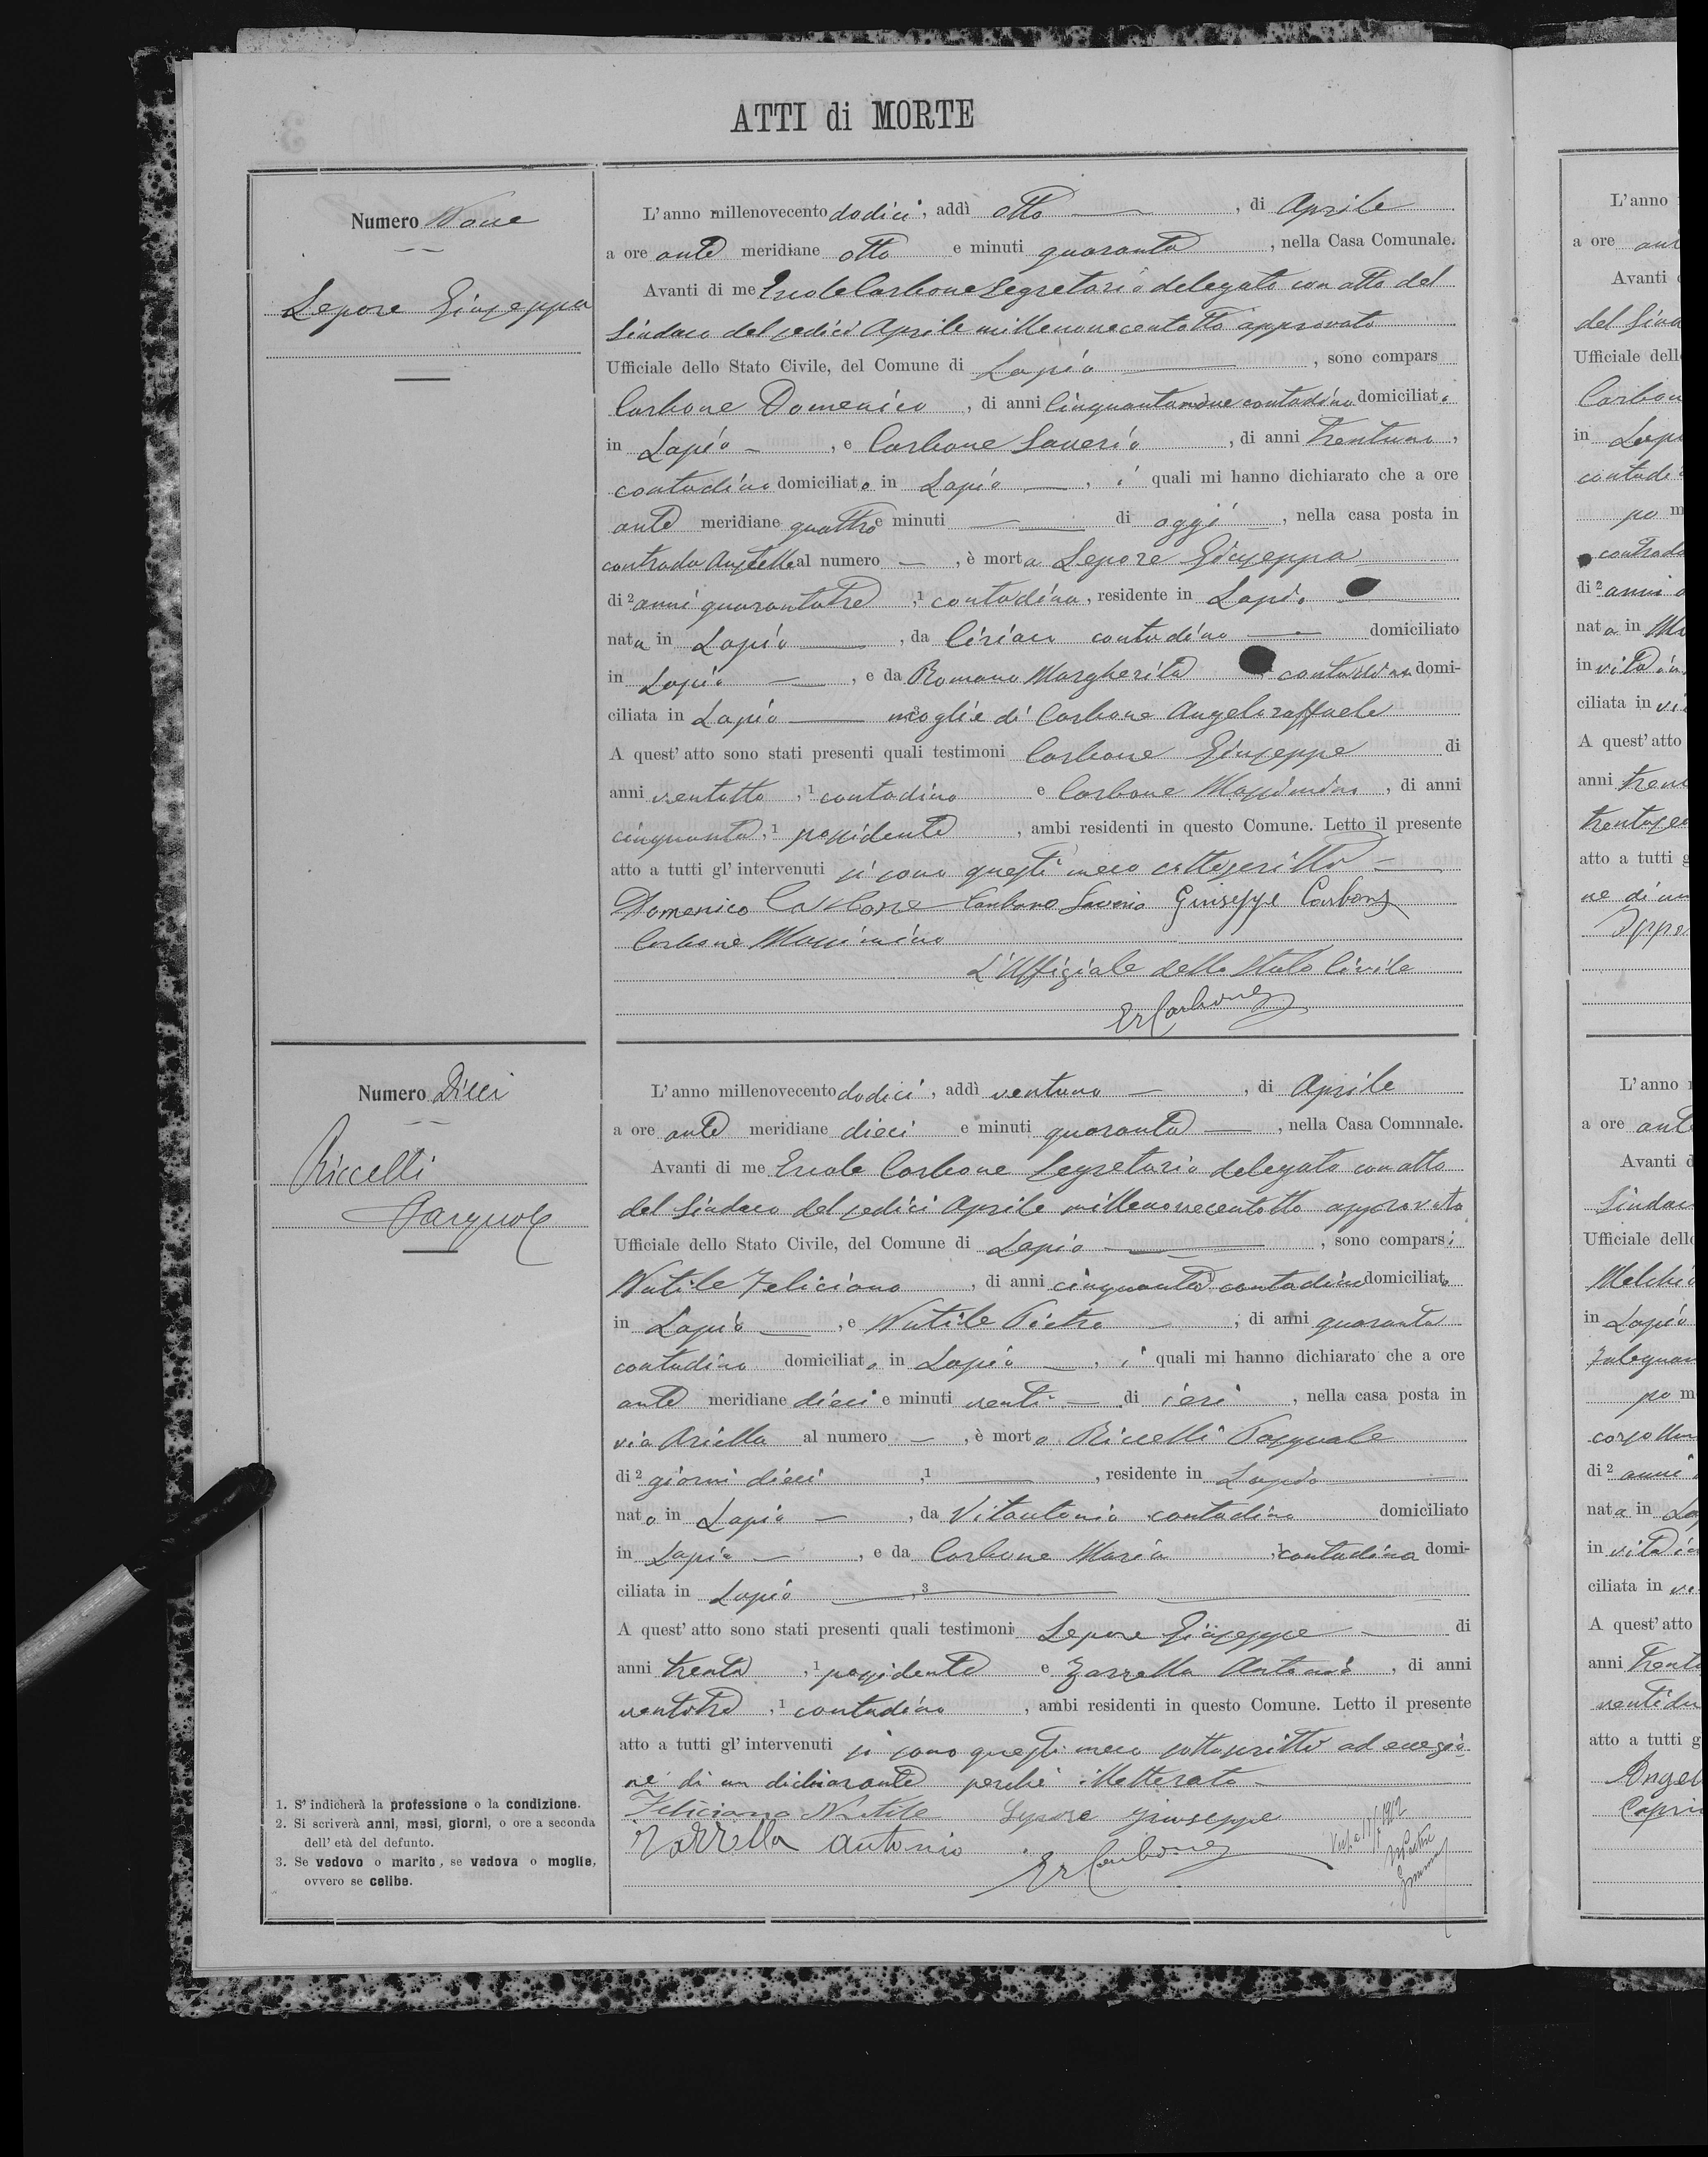 ATTI di MORTE
Numero Nove
Lepore Giuseppa
L'anno millenovecento dodici, addì otto, di Aprile
a ore ante meridiane otto e minuti quaranta, nella Casa Comunale.
Avanti di me Ercole Carbone Segretario delegato con atto del
Sindaco del sedici Aprile millenovecentotto approvato
Ufficiale dello Stato Civile, del Comune di Lapio, sono compars
Carbone Domenico, di anni cinquantanove contadino domiciliato
in Lapio, e Carbone Saverio, di anni trentuno,
contadino domiciliato in Lapio, i quali mi hanno dichiarato che a ore
ante meridiane quattro e minuti — di oggi, nella casa posta in
contrada al numero —, è morta Lepore Giuseppa
di 2 anni quarantatre, 1 contadina, residente in Lapio
nata in Lapio, da Ciriaco contadino domiciliato
in Lapio, e da Romano Margherita contadina domi-
ciliata in Lapio 3 moglie di Carbone Angeloraffaele
A quest' atto sono stati presenti quali testimoni Carbone Giuseppe di
anni ventotto, 1 contadino e Carbone Massimino, di anni
cinquanta, 1 possidente, ambi residenti in questo Comune. Letto il presente
atto a tutti gl' intervenuti si sono questi meco sottoscritto
Domenico Carbone Carbone Saverio Giuseppe Carbone
Carbone Massimino
L'Uffiziale dello Stato Civile
Er Carbone
Numero Dieci
Riccelli
Pasquale
L'anno millenovecento dodici, addì ventuno, di Aprile
a ore ante meridiane dieci e minuti quaranta, nella Casa Comnnale.
Avanti di me Ercole Carbone Segretario delegato con atto
del Sindaco del sedici Aprile millenovecentotto approvato
Ufficiale dello Stato Civile, del Comune di Lapio, sono comparsi
Nutile Feliciano, di anni cinquanta contadino domiciliato
in Lapio, e Nutile Pietro, di anni quaranta
contadino domiciliato in Lapio, i quali mi hanno dichiarato che a ore
ante meridiane dieci e minuti venti di ieri, nella casa posta in
via Ariella al numero —, è morto Riccelli Pasquale
di 2 giorni dieci, 1 —, residente in Lapio
nato in Lapio, da Vitantonio contadino domiciliato
in Lapio, e da Carbone Maria, 1 contadina domi-
ciliata in Lapio, 3
A quest' atto sono stati presenti quali testimoni Lepore Giuseppe di
anni trenta, 1 possidente e Zarrella Antonio, di anni
ventitre, 1 contadino, ambi residenti in questo Comune. Letto il presente
atto a tutti gl' intervenuti si sono questi meco sottoscritti ad eccezio
ne di un dichiarante perché illetterato
Feliciano Nutile Lepore Giuseppe
Zarrella Antonio Er Carbone
1. S' indicherà la professione o la condizione.
2. Si scriverà anni, mesi, giorni, o ore a seconda
dell' età del defunto.
3. Se vedovo o marito, se vedova o moglie,
ovvero se celibe.
L'anno
a ore
Avanti
del Sind
Ufficiale dell
Carbon
in Lapi
contadi
po m
contrada
di 2 anni
nata in
in vita in
ciliata in
A quest' atto
anni tren
trentase
atto a tutti g
ne di un
L'anno
a ore ant
Avanti d
Sindac
Ufficiale dell
Melchio
in Lapio
po m
di 2 anni
nata in La
in vita in
ciliata in
A quest' atto
anni trent
ventidu
atto a tutti g
Angel
Capri